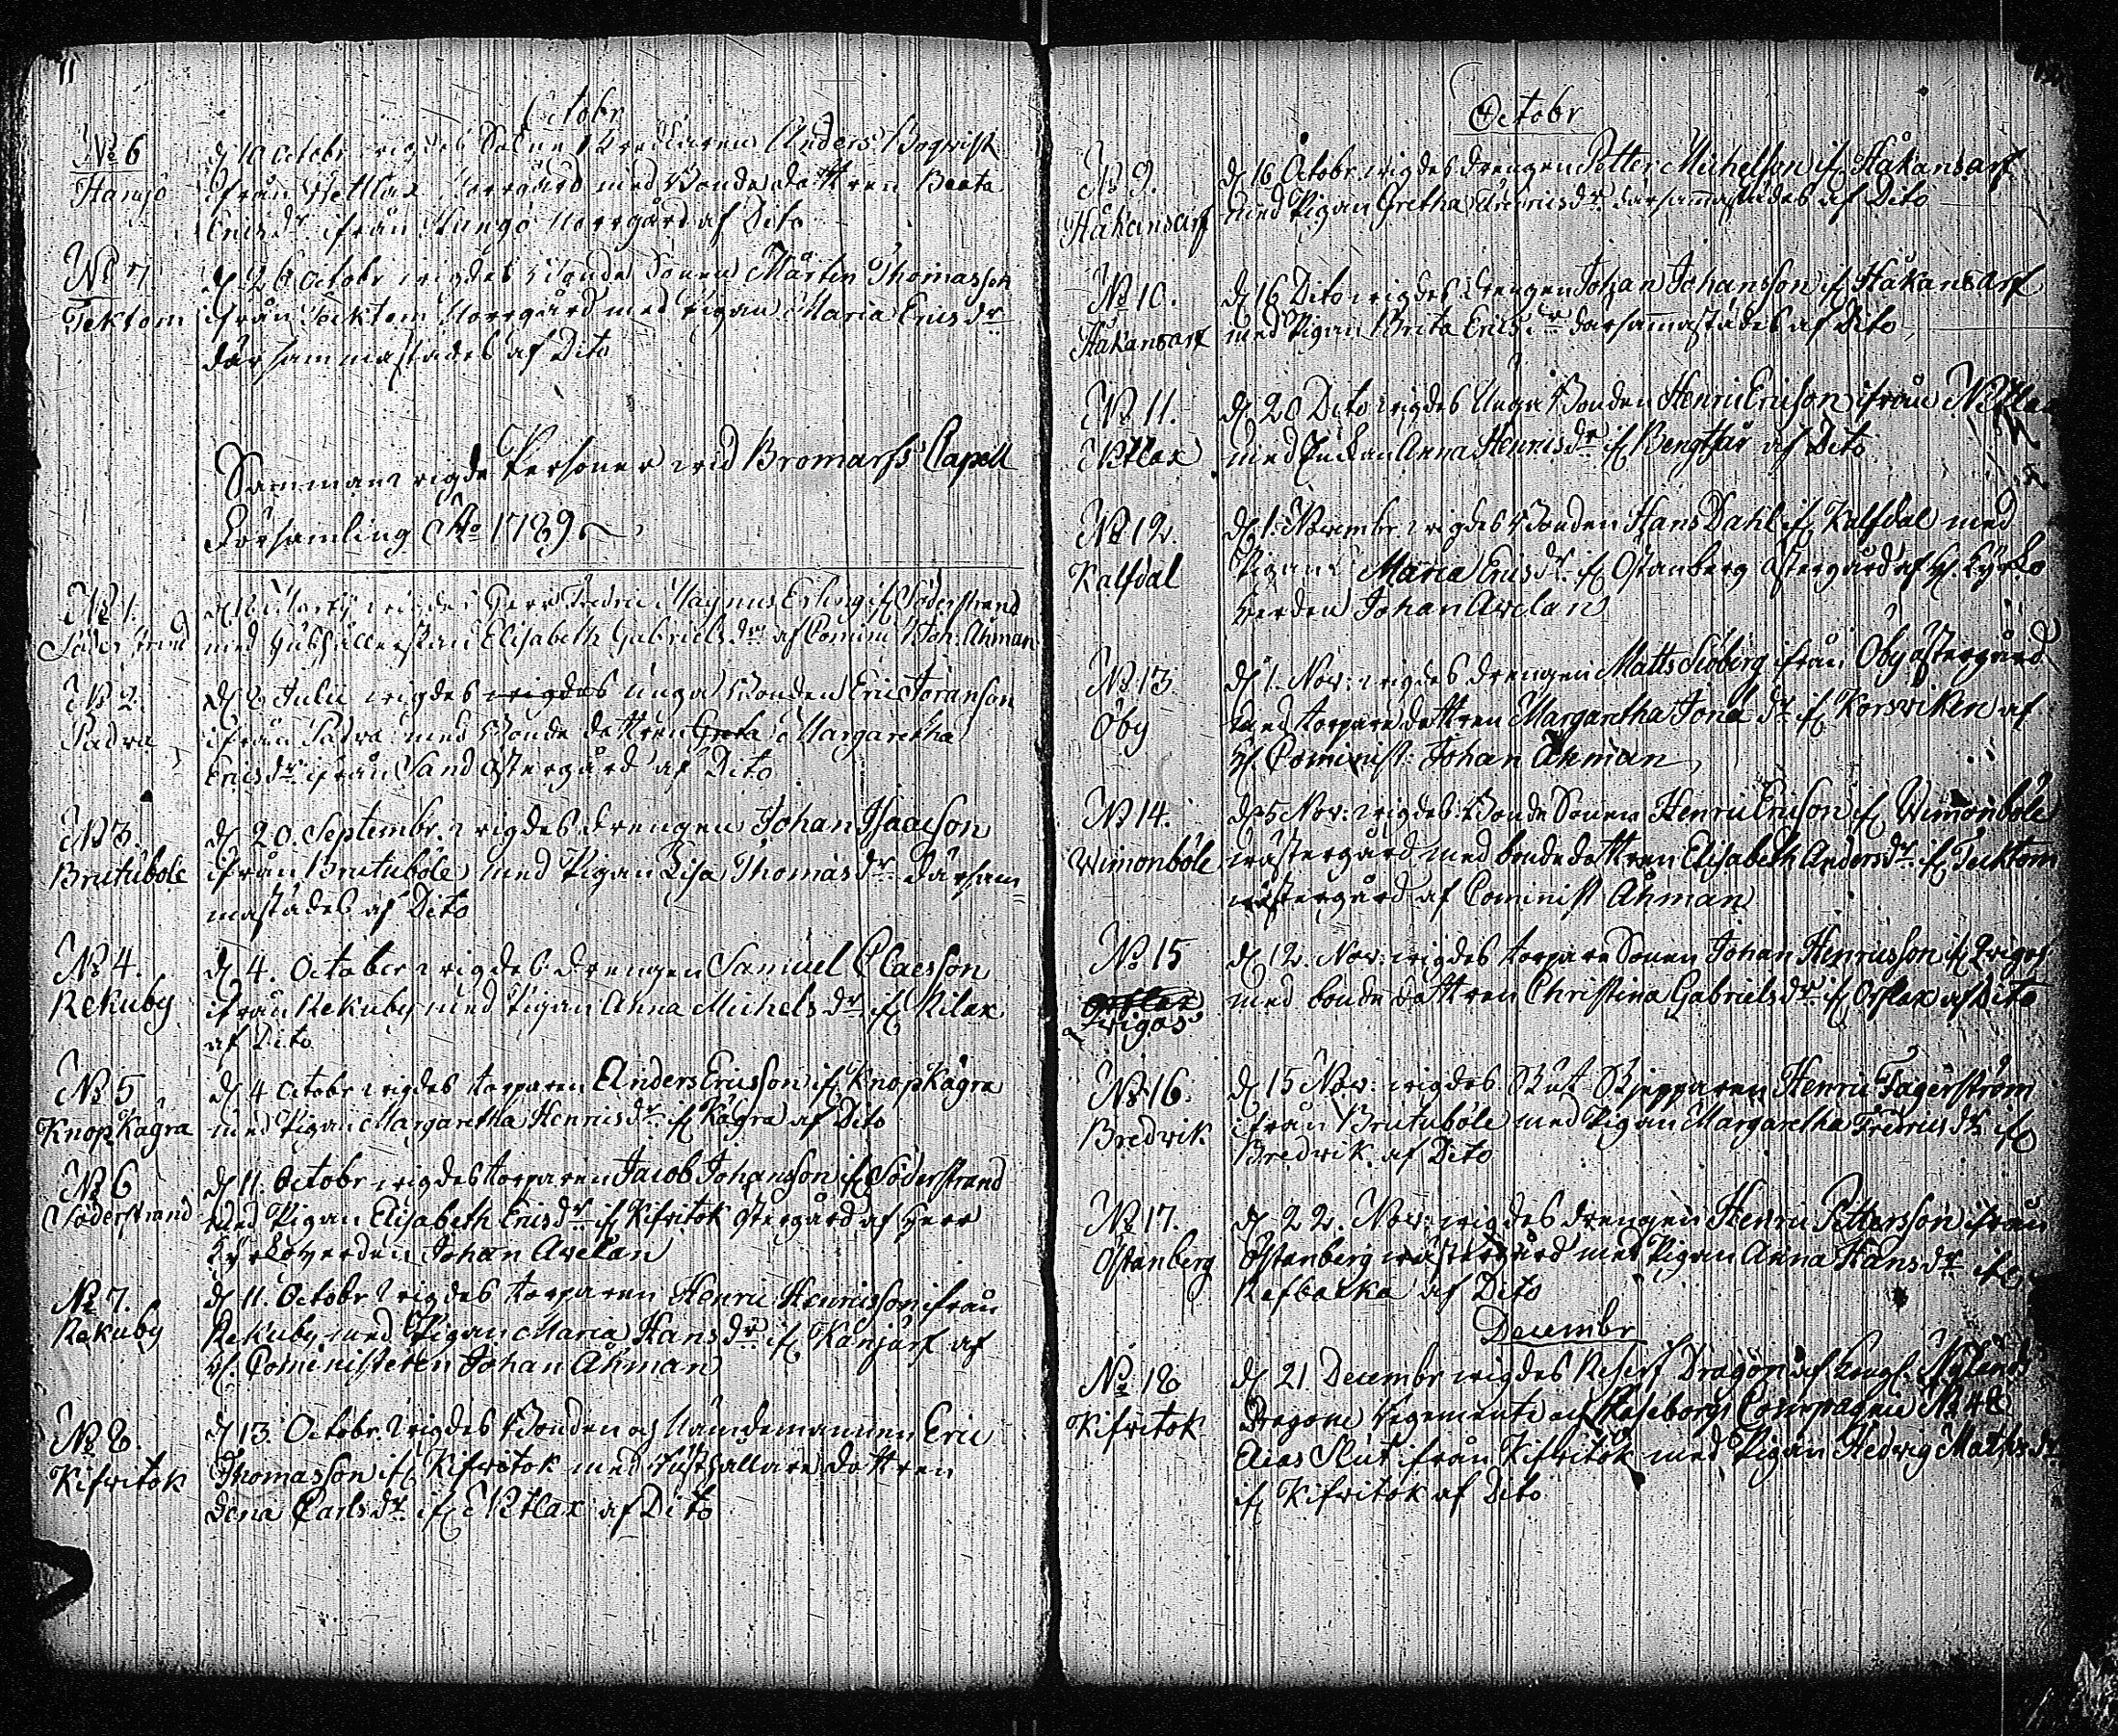 11
Octobr
No 6
Hangö
d 10 Octobr wigdes Anders Bogvist
ifrån Wettlax Norrgård med Bonde dottren Beata
Erics dr ifrån Norrgård af Dito
No 7
Tektom
d 26 Octobr wigdes Bonde Sonen Mårten Thomasson
ifrån Täcktom Norrgård med Pigan Maria Erics dr
därsammastädes af Dito
Sammanwigde Personer wid Bromarfs Capell
Församling Ao 1789
No 1.
Söderstrand
d Martij wigdes Herr Fredric Magnus Erling if Söderstrand
med Hushållerskan Elisabeth Gabriels dr af Comin: Joh: Åhman
No 2.
Padva
d 8 Julii wigdes wigdes unga Bonden Eric Jöranson
ifrån Padva med Bonde dottren Greta Margaretha
Erics dr ifrån Sand östergård af Dito
No 3.
Brutuböle
d 20. Septembr. wigdes drengen Johan Isaacson
ifrån Brutuböle med Pigan Lisa Thomas dr därsam=
mastädes af Dito
No 4.
Rekuby
d 4. October wigdes drengen Samuel Claesson
ifrån Rekuby med Pigan Anna Michels dr if Kilax
af Dito
No 5
Knopkågra
d 4 Octobr wigdes torparen Anders Ericsson if Knopkågra
med Pigan Margaretha Henrics dr if Kågra af Dito
No 6
Söderstrand
d 11. Octobr wigdes torparen Jacob Johanson if Söderstrand
med Pigan Elisabeth Erics dr if Kifvitok östergård af Herr
Kyrkoherden Johan Avelan
No 7.
Rekuby
d 11. Octobr wigdes torparen Henric Henricsson ifrån
Rekuby med Pigan Maria Hans dr if Kanjärf af
H. Cominis­teren Johan Åhman
No 8.
Kifvitok
d 13. Octobr. wigdes Bonden och Nämdemannen Eric
Thomasson if Kifvitok med Rusthållare dottren
Lena Carls dr if Nitlax af Dito
Octobr
No 9.
Håkansarf
d 16 Octobr. wigdes drengen Petter Michelson if Håkansarf
med Pigan Gretha Henrics dr därsammastädes af Dito
No 10.
Håkansarf
d 16 Dito wigdes drengen Johan Johansson if Håkansarf
med Pigan Brita Erics dr därsammastädes af Dito
No 11.
Nitlax
d 20 Dito wigdes Unga Bonden Henric Ericson ifrån Nitlax
med Enckan Anna Henrics dr if Bengtsår af Dito
No 12.
Kalfdal
d 1. Novembr. wigdes Bonden Hans Dahl if Kalfdal med
Pigan Maria Erics dr if Östanberg östergård af H. Kyrko
herden Johan Avelan
No 13.
Öby
d 1. Nov: wigdes drengen Matts Siöberg ifrån Öby östergård
med torpare dottren Margaretha Jona dr if Korsviken af
H. Cominist: Johan Åhman
No 14.
Wimonböle
d 5 Nov: wigdes Bonde Sonen Henric Ericson if Wimonböle
wästergård med bonde dottren Elisabeth Anders dr if Tecktom
wästergård af Cominist Åhman
No 15
Orslax
Qvigos
d 12. Nov: wigdes torpare Sonen Johan Henricsson if Qvigos
med bonde dottren Christina Gabriels dr if Orslax af Dito
No 16.
Bredvik
d 15 Nov: wigdes Skut Skepparen Henric Fagerström
ifrån Brutuböle med Pigan Margaretha Fredrics dr if
Bredvik. af Dito
No 17.
Östanberg
d 22. Nov: wigdes drengen Henric Pettersson ifrån
Östanberg wästergård med Pigan Anna Hans dr if
Refbacka af Dito
Decembr
No 18
Kifvitok
d 21 Decembr wigdes Reserf Dragon af Kongl. Nylands
Dragone Regemente och Raseborgs Compagnie No 48
Elias Slut ifrån Kifvitok med Pigan Hedvig Matts dr
if Kifvitok af Dito